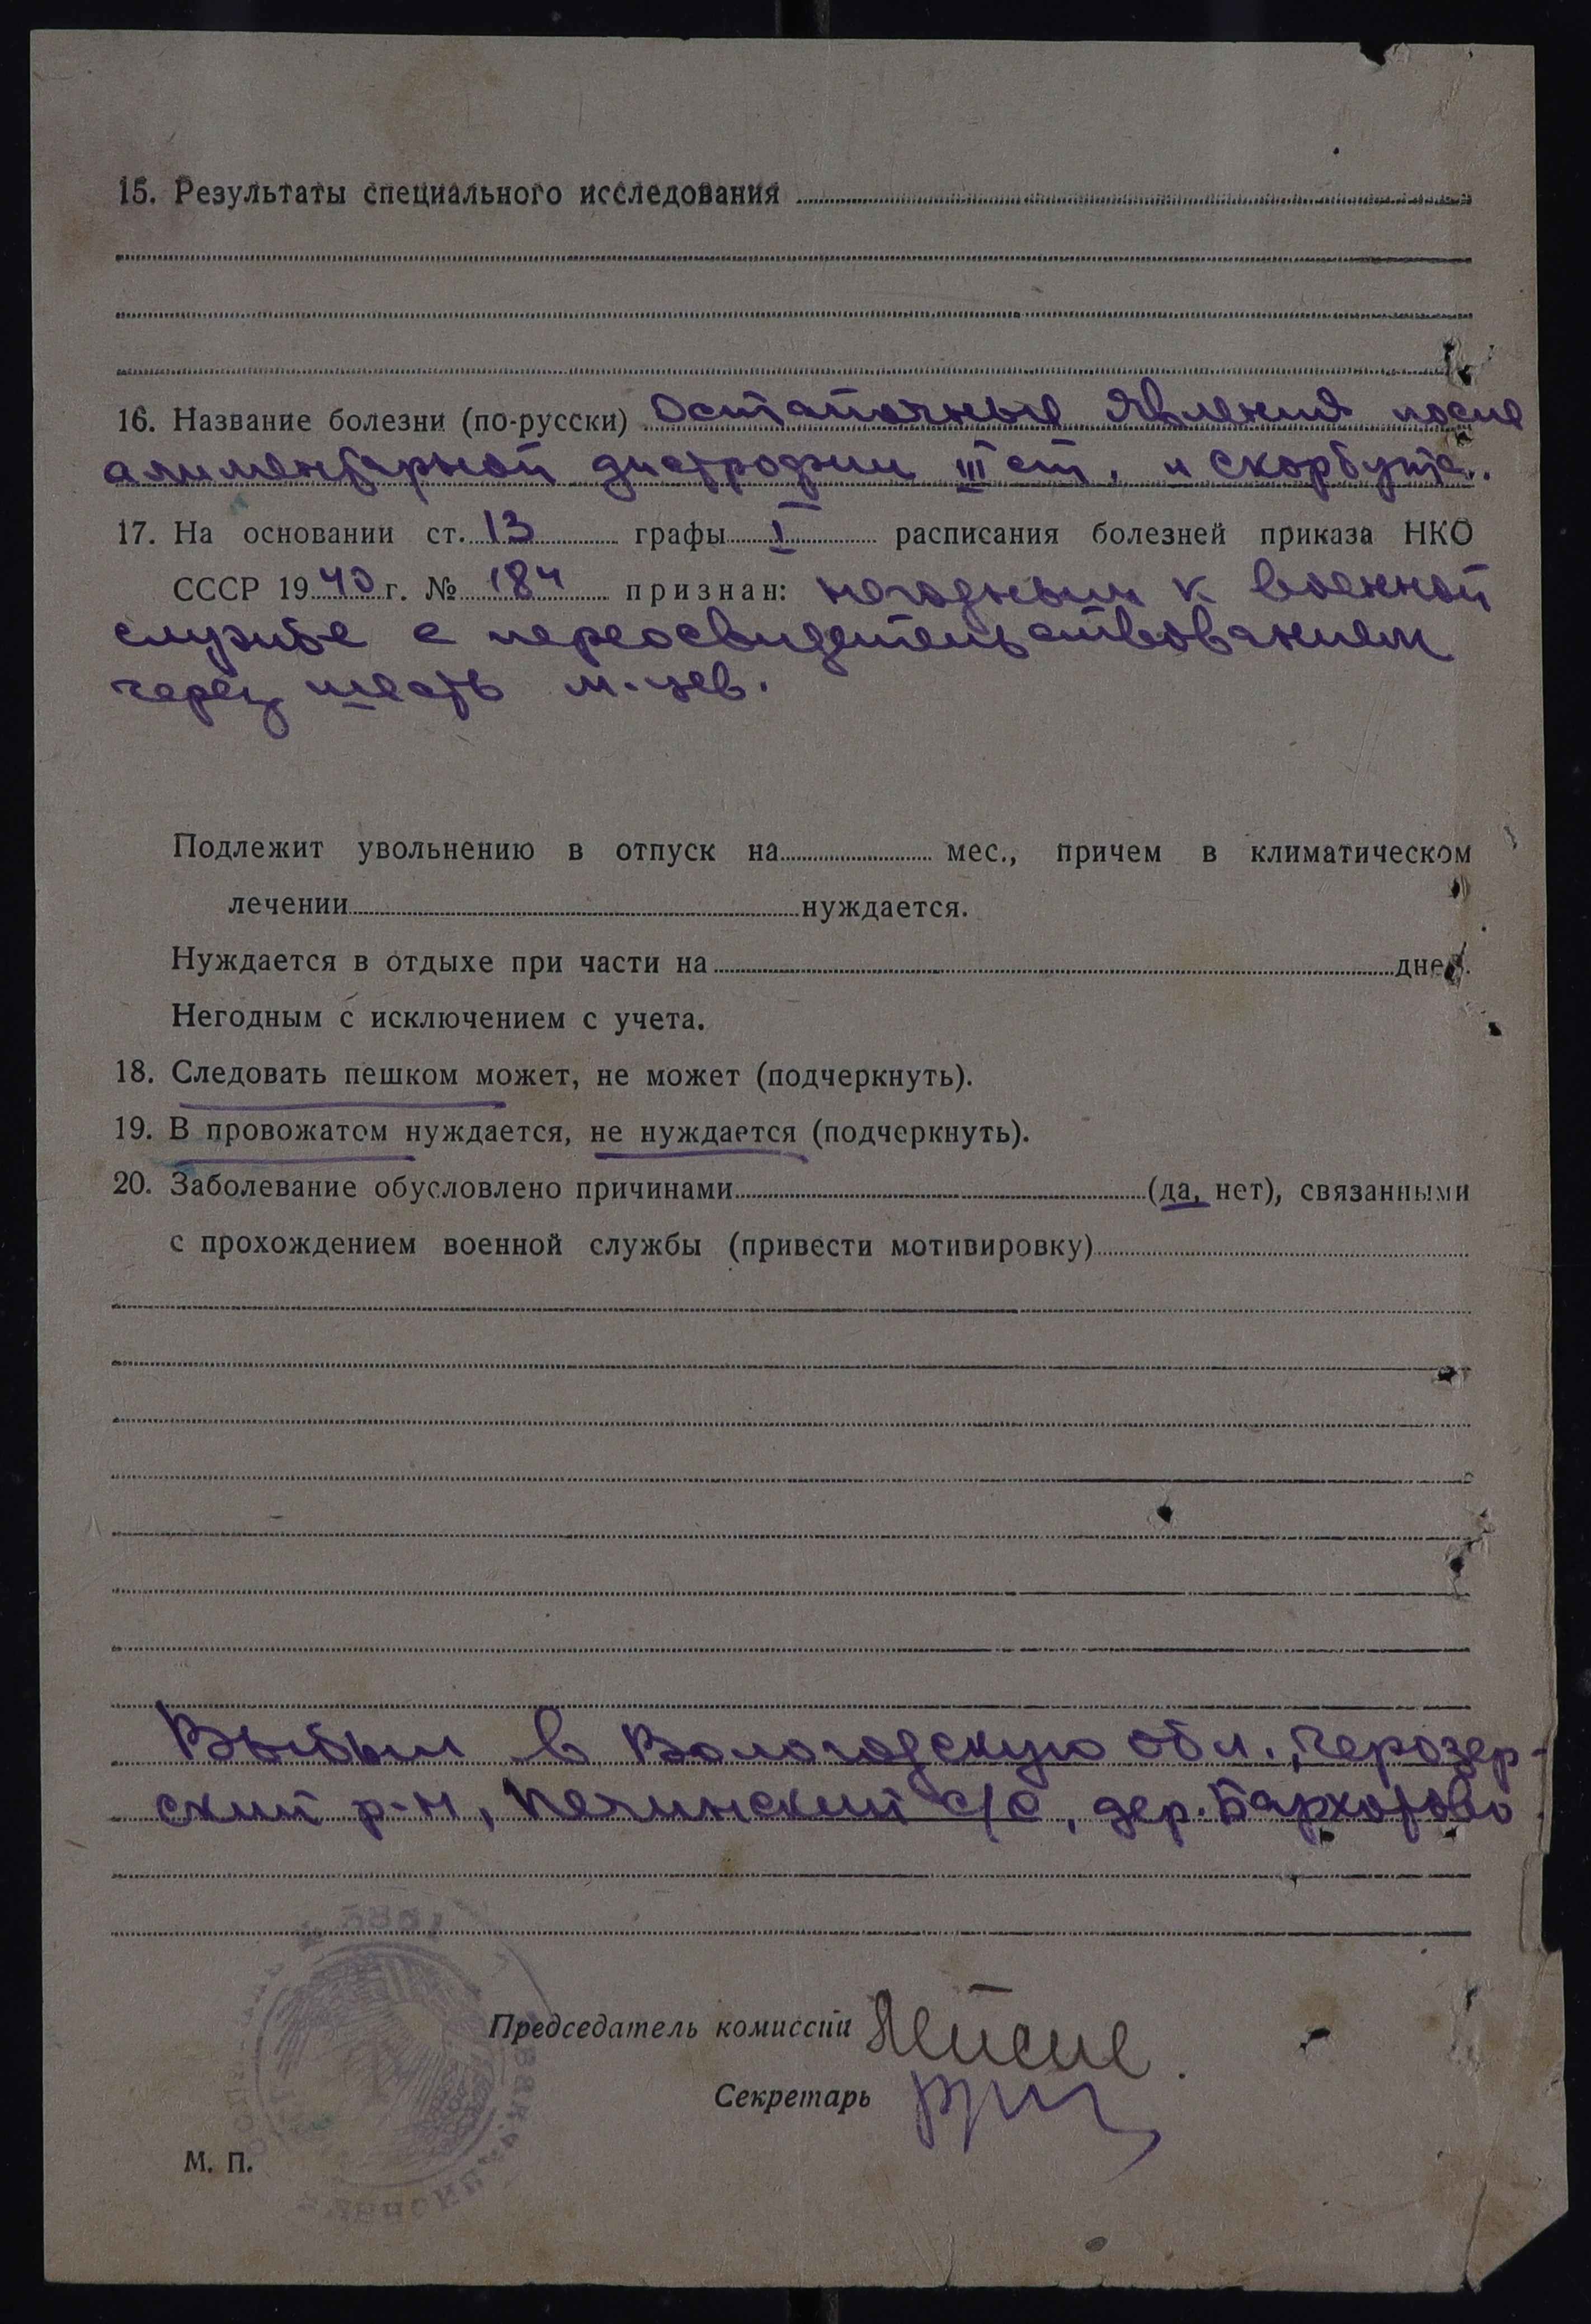 15. Результаты специального исследования
16. Название болезни (по-русски) Остаточные явления после
алиментарной дистрофии III ст. и скорбута.
17. На основании ст. 13 графы I расписания болезней приказа НКО
СССР 1940 г. № 184 признан: негодным к военной
службе с переосвидетельствованием
через шесть м-цев.
Подлежит увольнению в отпуск на мес., причем в климатическом
лечении нуждается.
Нуждается в отдыхе при части на дней.
Негодным с исключением с учета.
18. Следовать пешком может, не может (подчеркнуть).
19. В провожатом нуждается, не нуждается (подчеркнуть).
20. Заболевание обусловлено причинами (да, нет), связанными
с прохождением военной службы (привести мотивировку)
Выбыл в Вологодскую обл.,
ский р-н, с/с, дер.
Председатель комиссии
Секретарь
М. П.